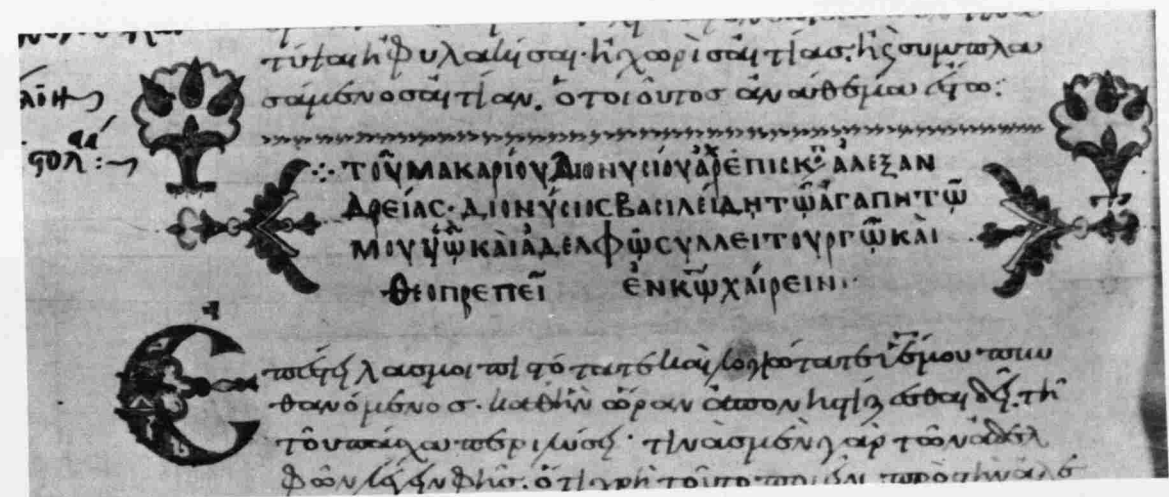 τύψαι ἢ φυλακίσαι· ἢ χωρὶς αἰτίας. ἢ συμπλα
σάμενος αἰτίαν. ὁ τοιοῦτος ἀνάθεμα ἔστω:
ΤΟΥ͂ ΜΑΚΑΡΊΟΥ ΔΙΟΝΥΣΊΟΥ ἈΡΧ ἘΠΙΣΚΟ ἈΛΕΞΑΝ
ΔΡΕΊΑΣ· ΔΙΟΝΎΣΙΟΣ ΒΑΣΙΛΕΊΔΗ ΤΩ͂ ἈΓΑΠΗΤΩ͂
ΜΟΥ ΥἹΩ͂ ΚΑῚ ἈΔΕΛΦΩ͂ ΣΥΛΛΕΙΤΟΥΡΓΩ͂ ΚΑῚ
ΘΕΟΠΡΕΠΕΙ͂ ἘΝ ΚΩ͂ ΧΑΊΡΕΙΝ·
Ἐπέστειλάς μοι πιστότατε καὶ λογιώτατε υἱέ μου πυν
θανόμενος· καθ' ἣν ὥραν ἀπονηστίζεσθαι δεῖ. τῆ
τοῦ πάσχα περιλύσει· τινὰς μὲν γὰρ τῶν ἀδελ
φῶν λέγειν φής. ὅτι χρὴ τοῦτο ποιεῖν πρὸς τὴν ἀλε